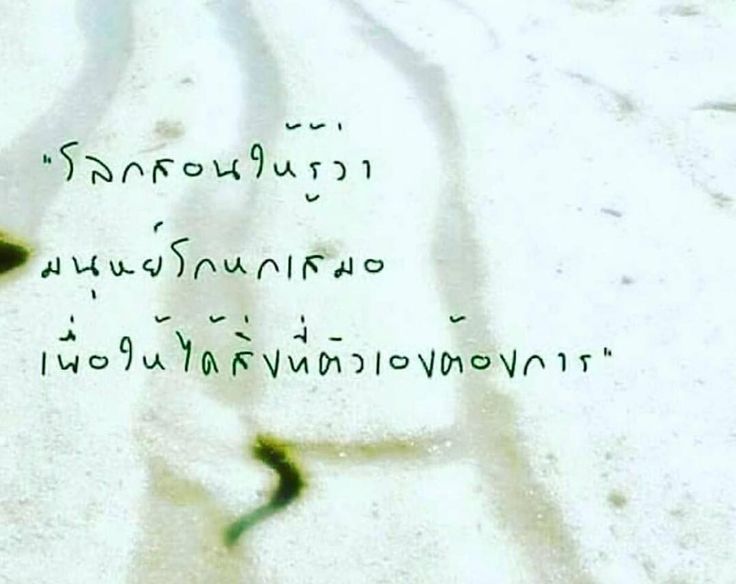 "โลกสอนให้รู้ว่า
มนุษย์โกหกเสมอ
เพื่อให้ได้สิ่งที่ตัวเองต้องการ"